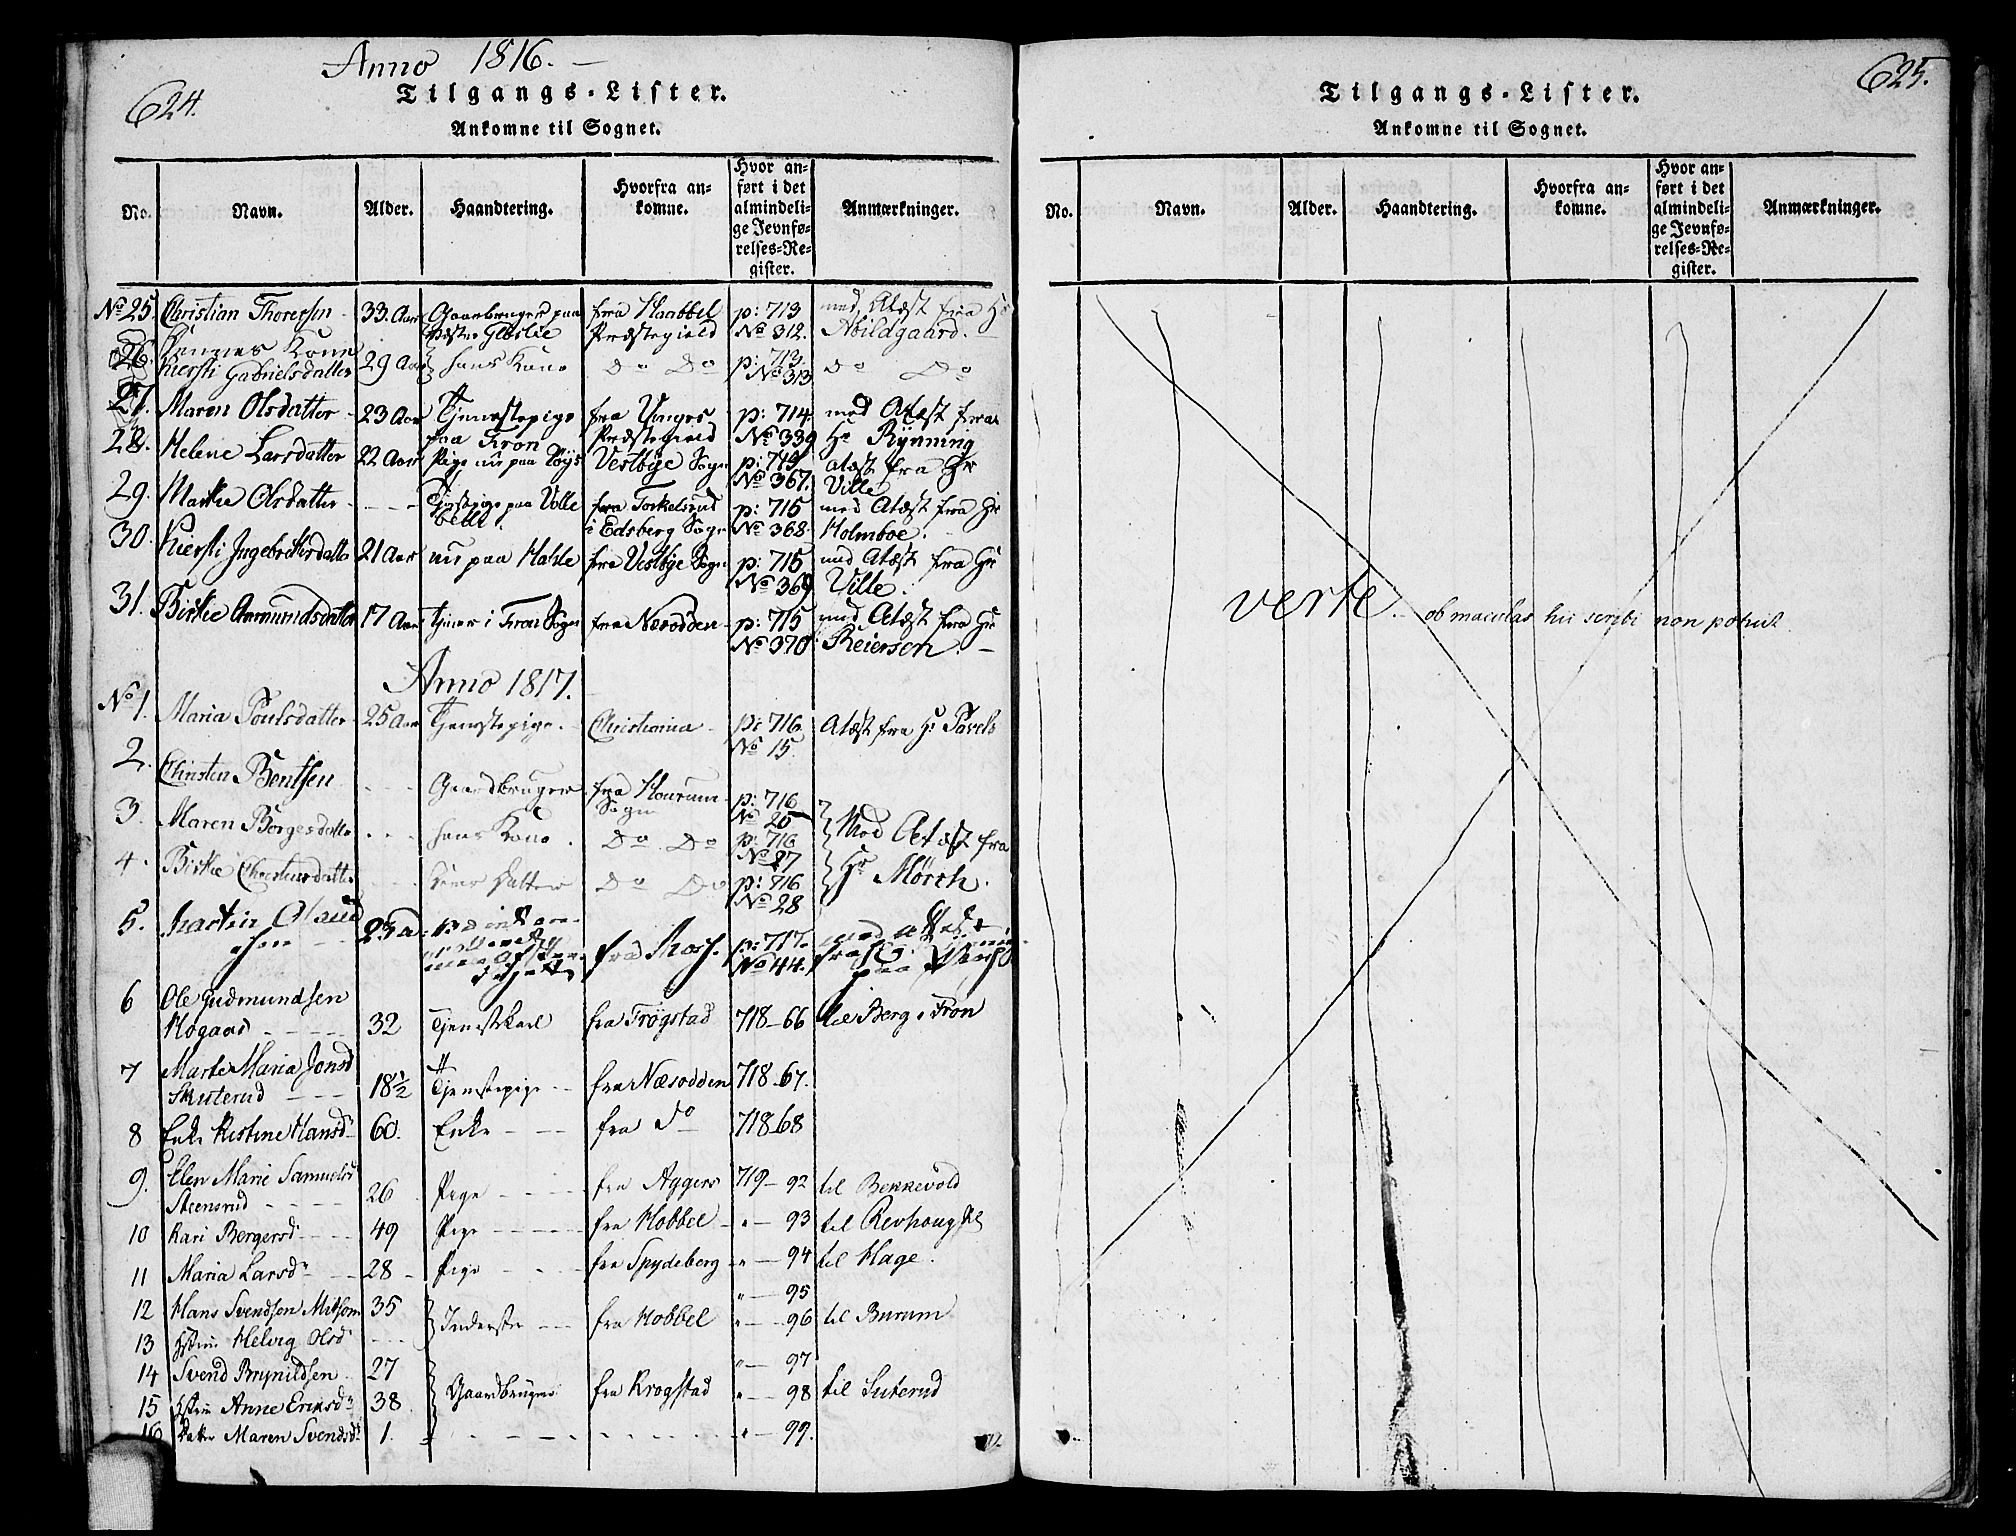 624.
Anno 1816. —
Tilgangs-Lister.
Ankomne til Sognet.
No. Navn. Alder. Haandtering. Hvorfra ankomne. Hvor anført i det almindelige Jevnførelses-Register. Anmærkninger.
No 25 Christian Thoresen 33. Aar Gaardbruger paa Glaslie fra Haabbel Præstegield p: 713 No 312. med Atæst fra Hr Abildgaard. —
26. Kiersti Gabrielsdatter 29 Aar hans Kone Do Do p: 713. No 313 Do Do
27. Maren Olsdatter 23 Aar Tjenestepige paa Fron fra Præstegield p: 714 No 339 med Atæst fra Hr Rynning
28. Helene Larsdatter 22 Aar Pige nu paa Vestbye Sogn p: 715 No 367. atæst fra Hr Ville
29. Marthe Olsdatter - - - paa Volle fra Torkelsrud i Edsberg Sogn p: 715 No 368. med Atæst fra Hr Holmboe.
30. Kiersti Ingebretsdatter 21 Aar nu paa Holle fra Vestbye Sogn p: 715 No 369 med Atæst fra Hr Ville.
31. Birthe Ammundsdatter 17 Aar tjener i Fron Sogn fra Næsodden p: 715 No 370 med Atæst fra Hr Reiersen. —
Anno 1817.
No 1. Maria Poulsdatter 25 Aar Tjenestepige. Christiania p: 716 No 15. Atæst fra Hr Pavels
2. Christen Bentsen - - - Gaardbruger fra Haurum Sogn p: 716 No 26
3. Maren Borgesdatter - - - hans Kone. Do Do p: 716 No 27 Med Attæst fra Hr Mørch.
4. Birthe Christensdatter - - - Datter Do Do p: 716 No 28
5. Martin Olaus 23 a fra Moss. p: 717. No 44. med Attest fra
6 Ole Gudmundsen Hogaard - - - 32 Tjenestekarl fra Trøgstad 718-66 til Berg i Fron
7 Marte Maria Jonsd Skuterud - - - 18½ Tjenestepige - - fra Næsodden 718-67.
8 Enke Kistine Hansdr 60. Enke - - - fra do 718-68
9. Elen Marie Samuelsd Steensrud - - - - 26 Pige - - - - fra Aggers 719-92 til Bekkevold
10 Kari Bergersd - - - 49 Pige - - - - fra Hobbel - " - 93 til Revhaug
11 Maria Larsdr - - 28 - Pige - - - fra Spydeberg " - 94 til Hage.
12 Hans Svendsen 35 " - 95
13 Helvig Olsd - - - Inderste - - fra Hobbel " - 96 til Burum
14 Svend Brynildsen 27 " - 97
15 Anne Eriksdr 38 Gaardbruger fra Krogstad " - 98 til Suterud
16 Maren Svendsdr 1. - - - - - - " - 99.
625.
Tilgangs-Lister.
Ankomne til Sognet.
No. Navn. Alder. Haandtering. Hvorfra ankomne. Hvor anført i det almindelige Jevnførelses-Register. Anmærkninger.
verte. ob maculas hic scribi non potuit.